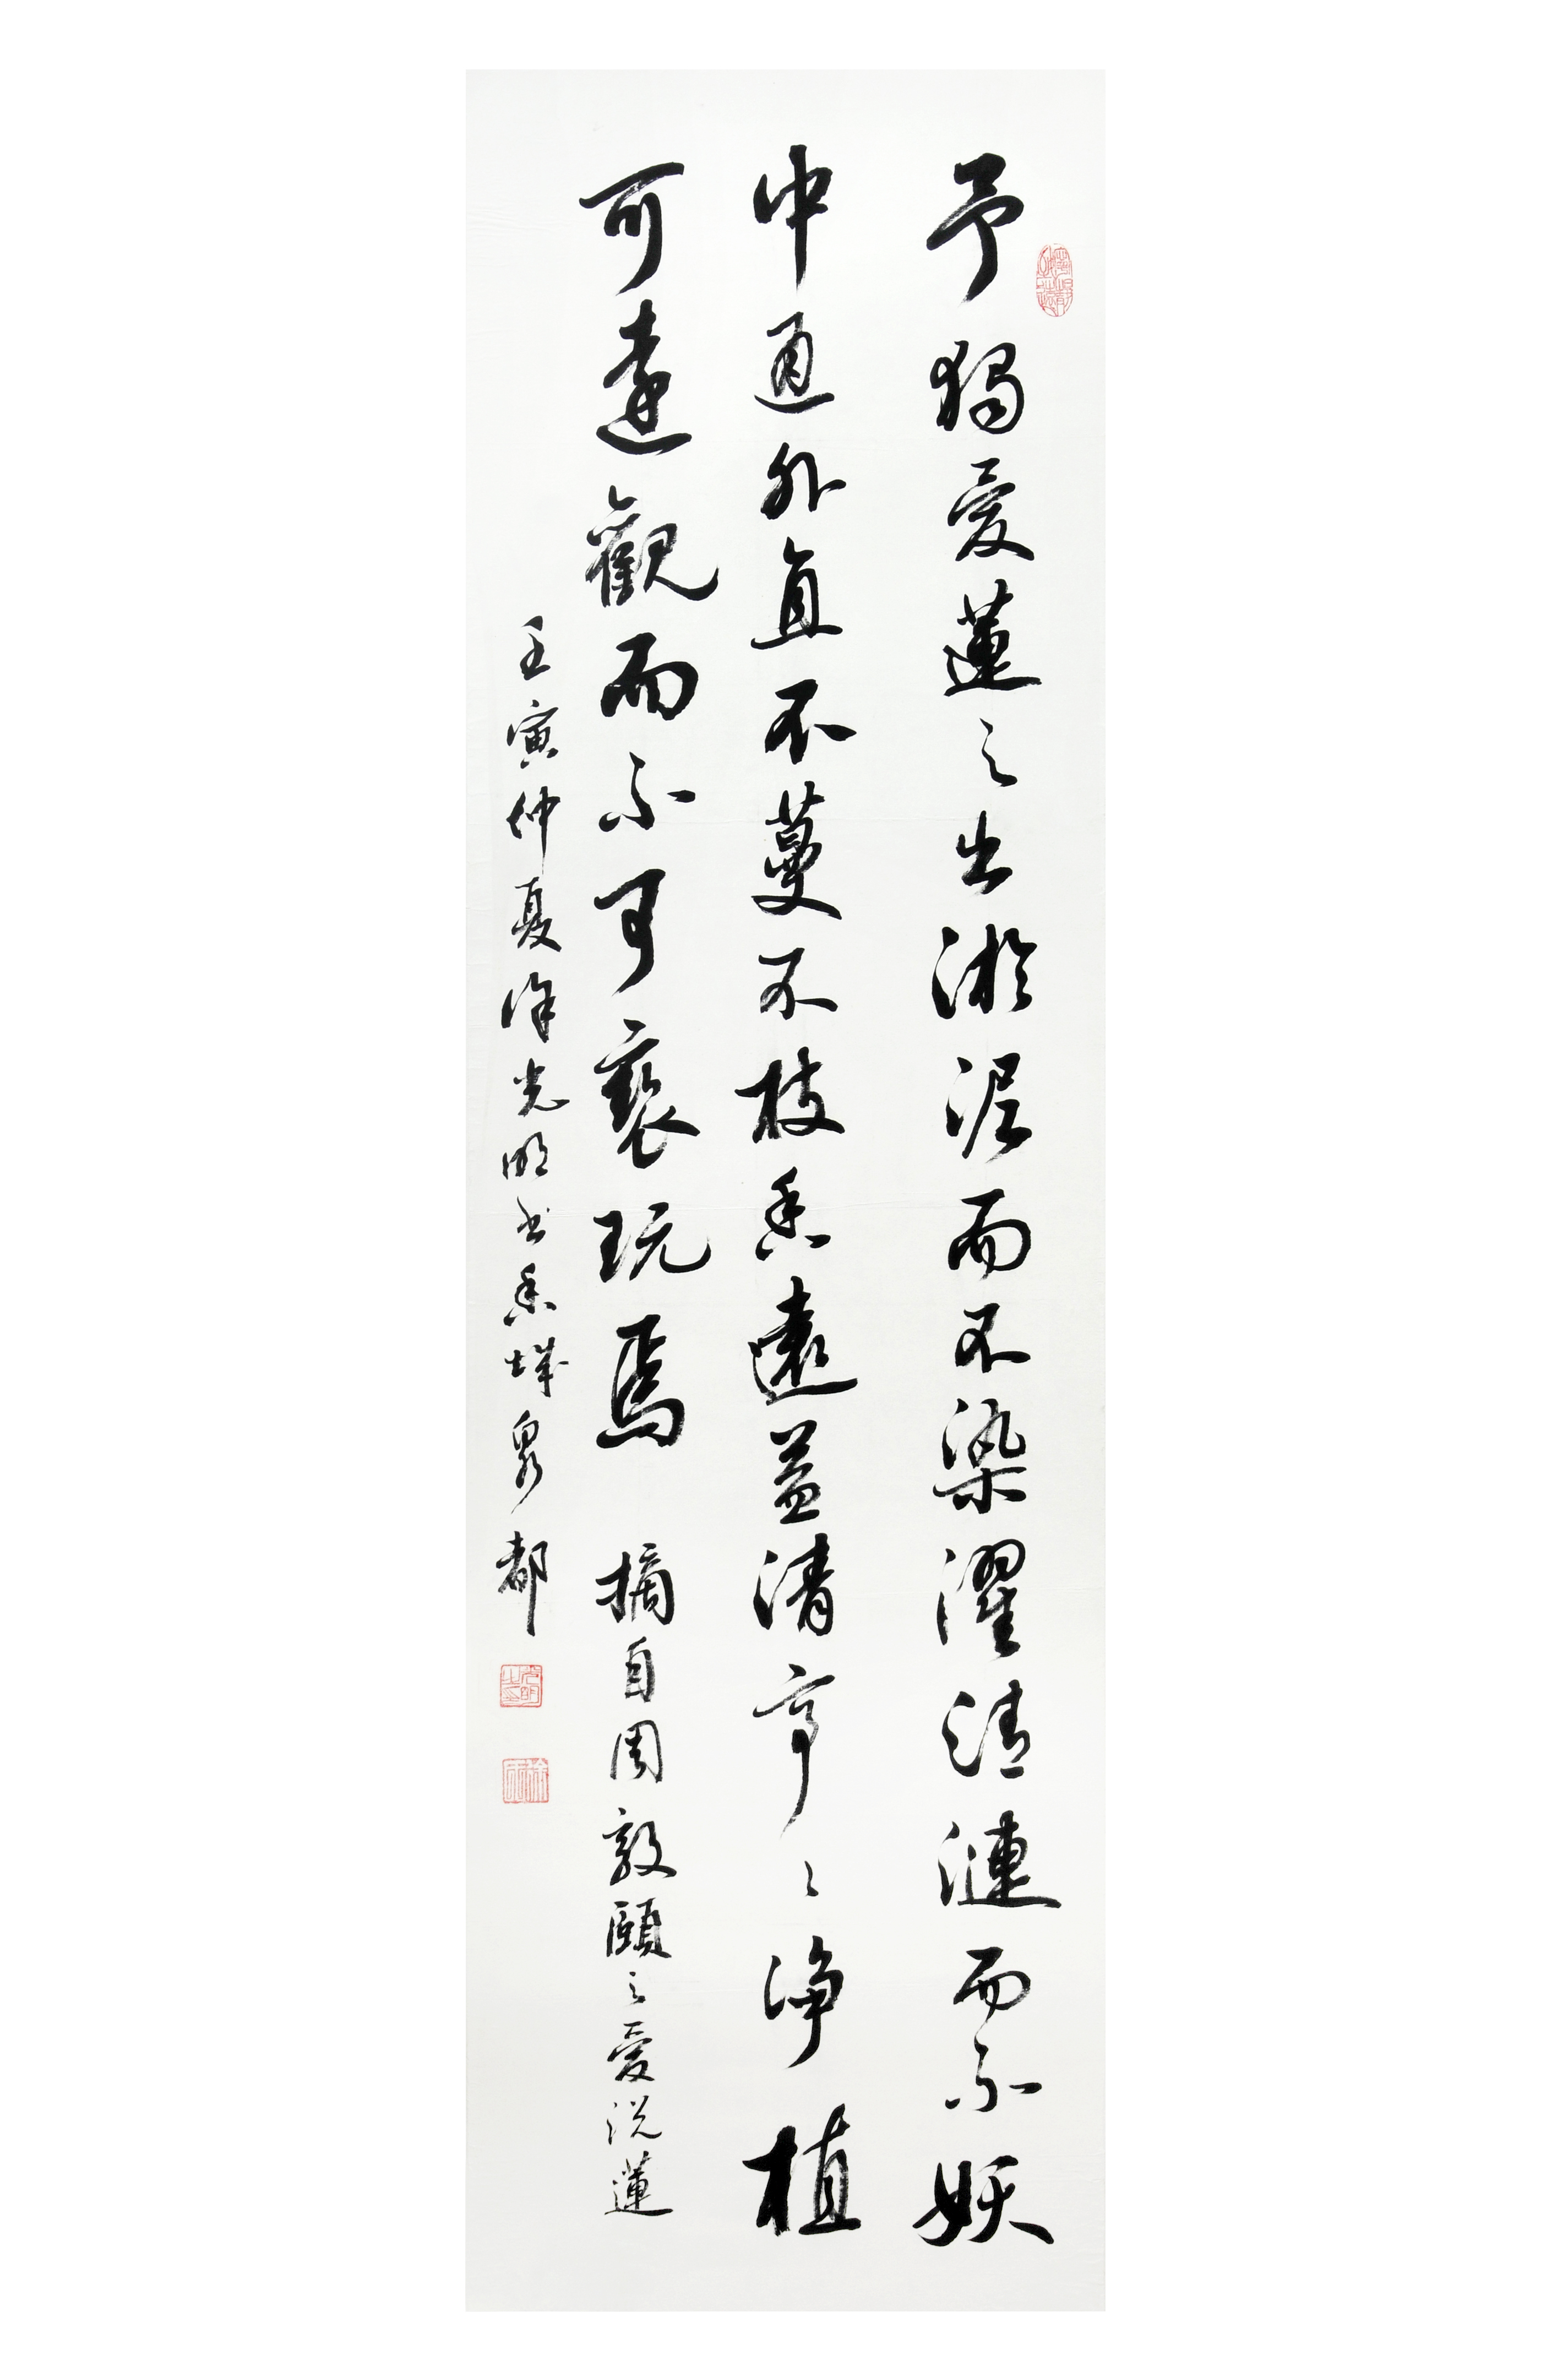 予獨愛蓮之出淤泥而不染濯清漣而不妖
中通外直不蔓不枝香遠益清亭々淨植
可遠觀而不可褻玩焉 摘自周敦頤之愛說蓮
壬寅仲夏徐光明书香城泉都